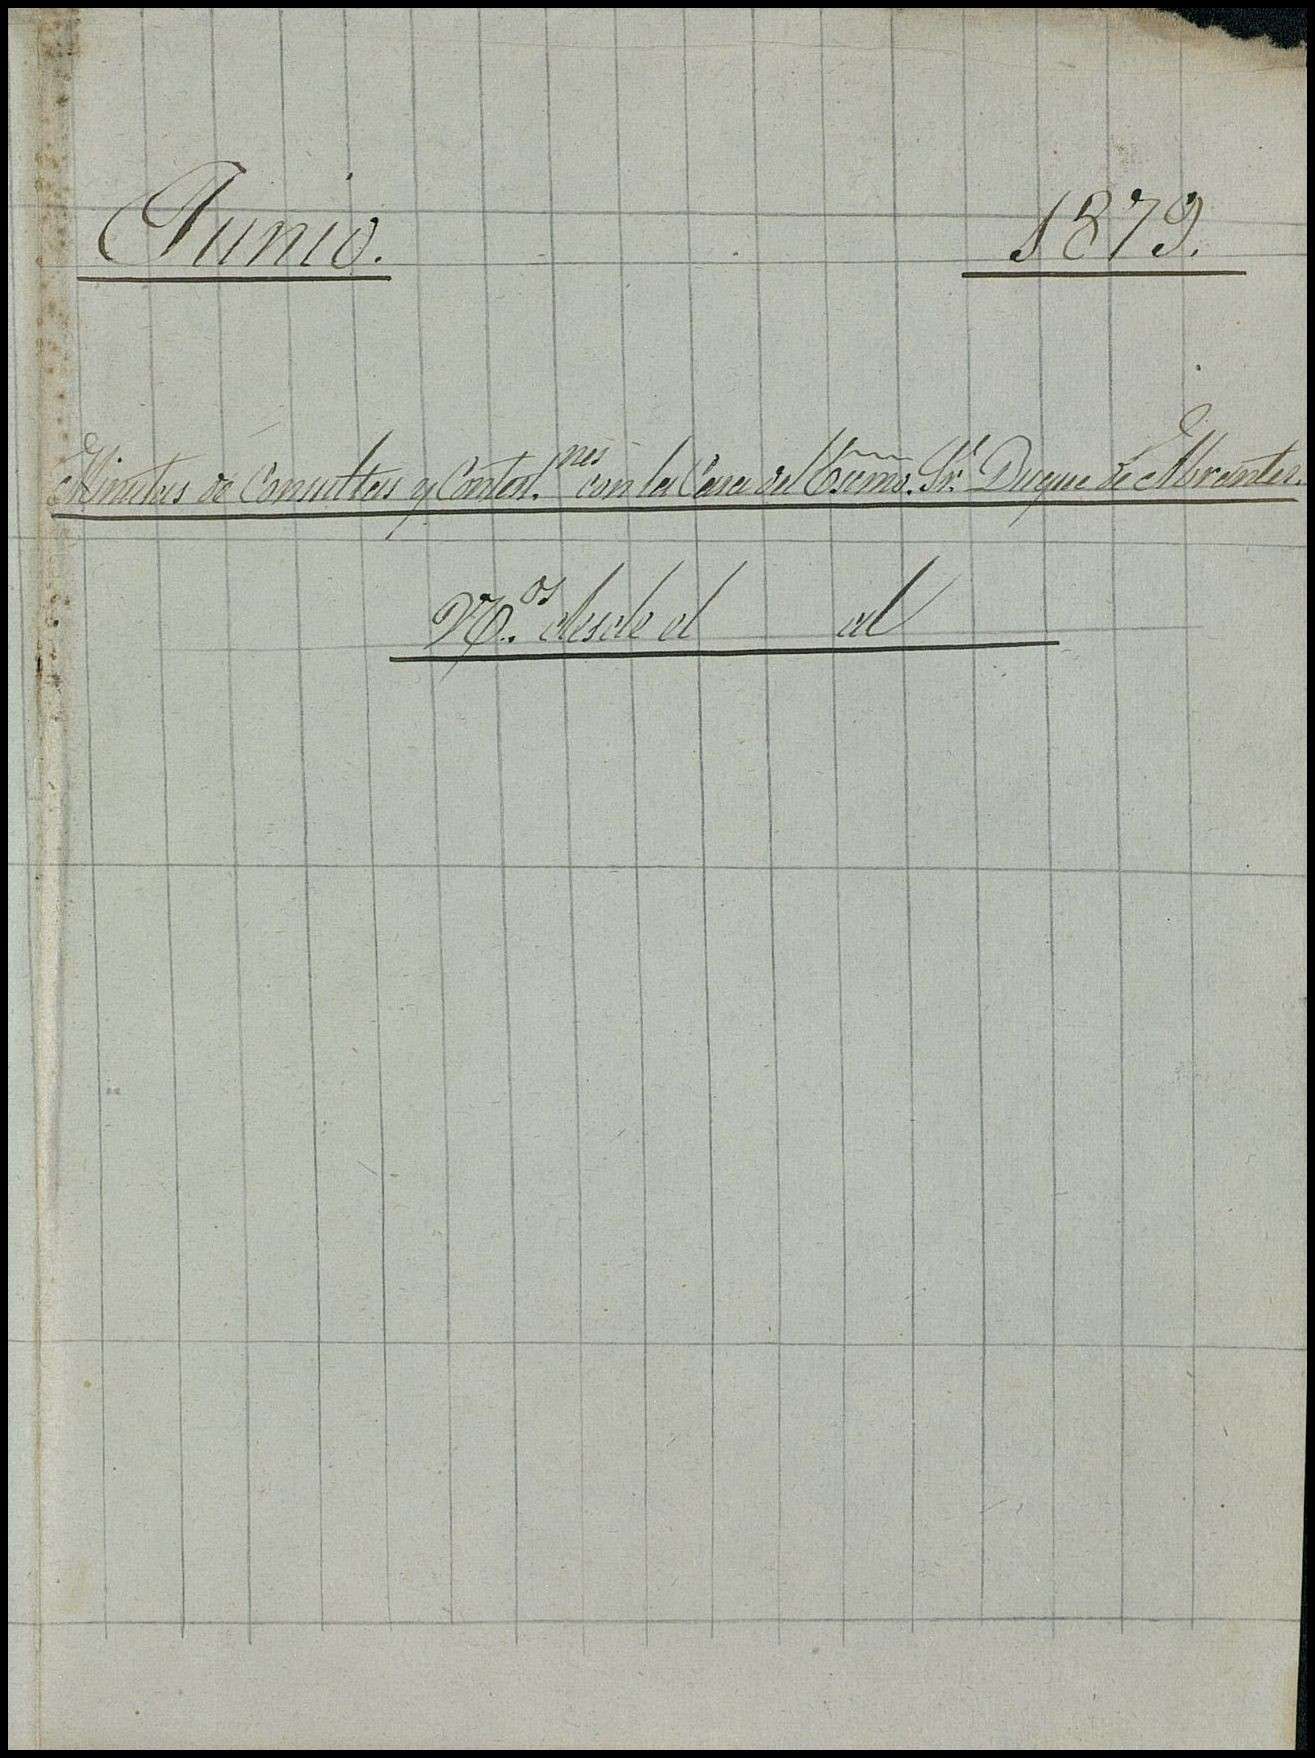 Junio. 1879.
Minutas de Consultas y Contest.nes con la Casa del Excmo. Sr. Duque de Abrantes.
N.os desde el al